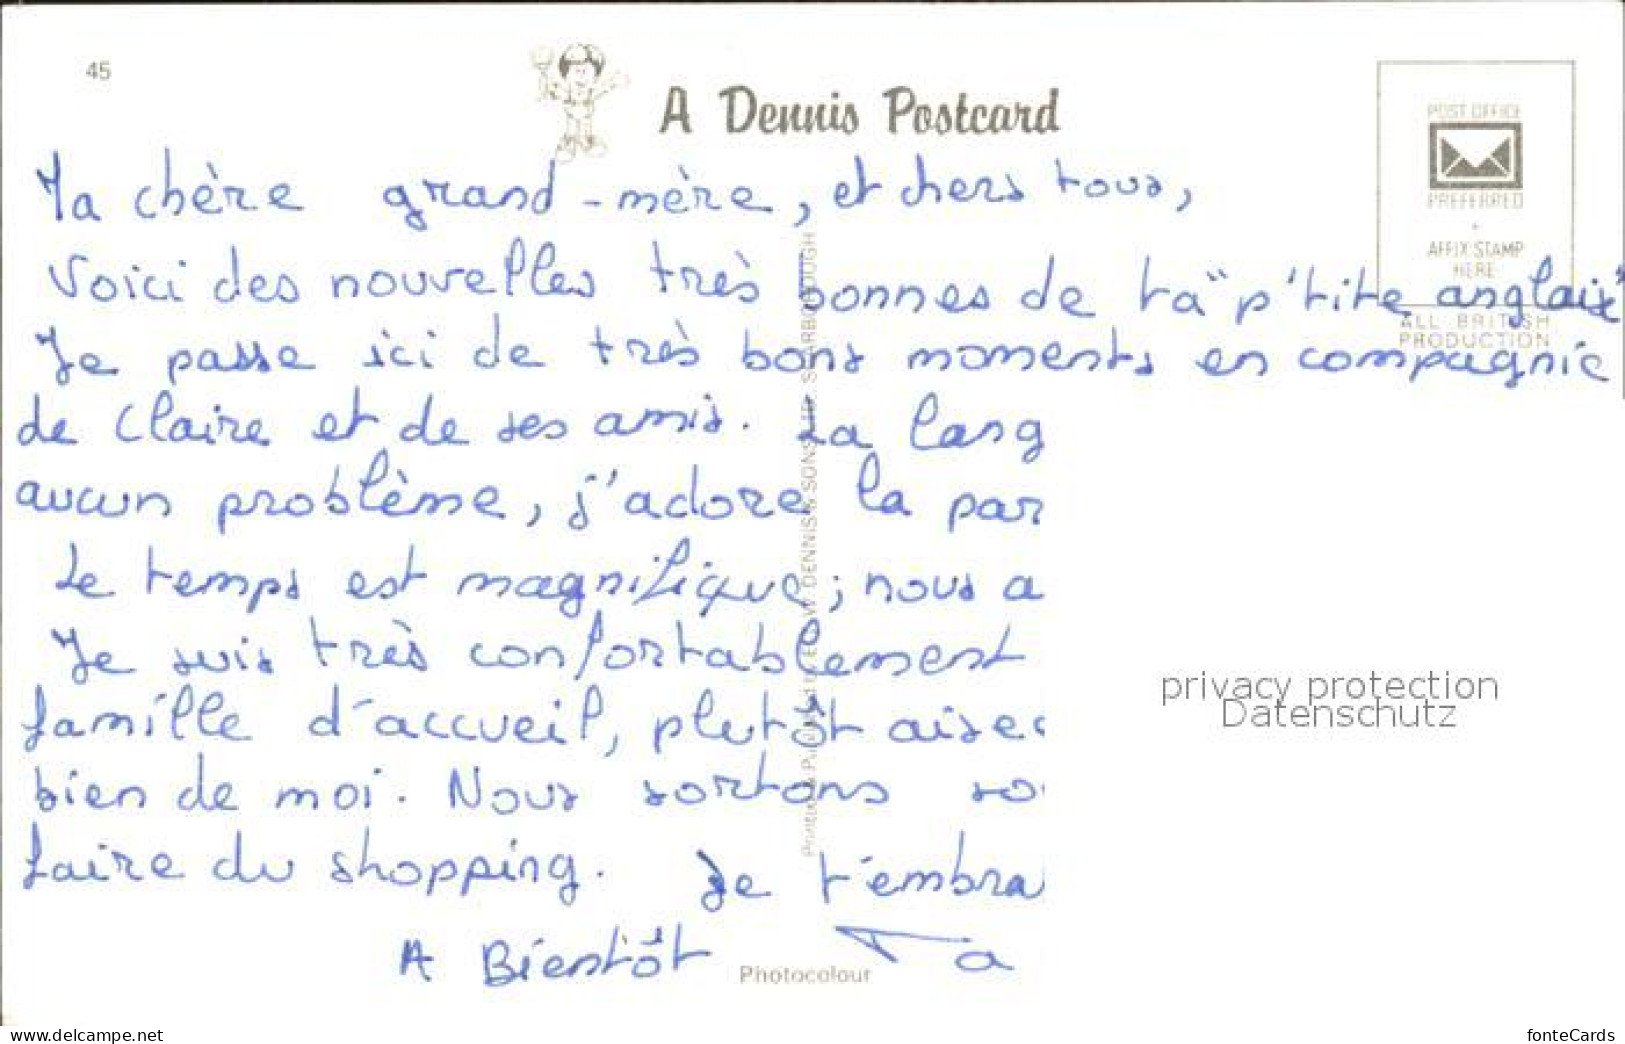 45
A Dennis Postcard
POST OFFICE
PREFERRED
AFFIX STAMP
HERE
ALL BRITISH
PRODUCTION
Ma chère grand-mère, et chers tous,
Voici des nouvelles très bonnes de ta "p'tite anglaise"
Je passe ici de très bons moments en compagnie
de Claire et de ses amis. La lang
aucun problème, j'adore la par
Le temps est magnifique; nous a
Je suis très confortablement
famille d'accueil, plutôt aisé
bien de moi. Nous sortons so
faire du shopping. Je t'embra
A Bientôt Ta
DENNIS & SONS
SCARBOROUGH
Photocolour
privacy protection
Datenschutz
www.delcampe.net
fonteCards